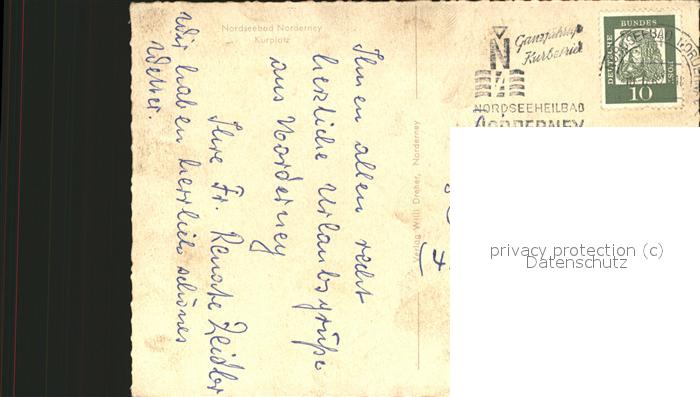 Nordseebad Norderney
Kurplatz
Ihnen allen recht
herzliche Urlaubsgrüße
aus Norderney
Ihre Fr. Renate Zeidler
Wir haben herrlich schönes
Wetter.
Verlag Willi Dreher, Norderney
Ganzjährige
Kurbetrieb
N
NORDSEEHEILBAD
NORDERNEY
DEUTSCHE
BUNDES
POST
10
privacy protection (c)
Datenschutz